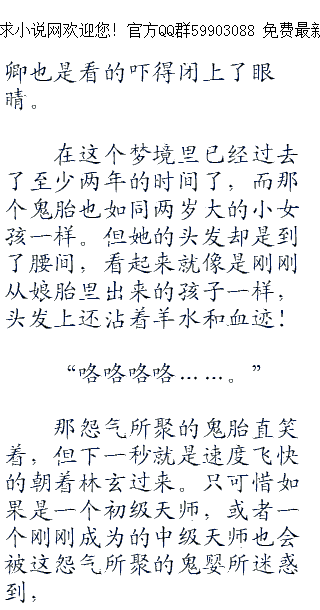 求小说网欢迎您！官方QQ群59903088 免费最新
卿也是看的吓得闭上了眼
睛。
在这个梦境里已经过去
了至少两年的时间了，而那
个鬼胎也如同两岁大的小女
孩一样。但她的头发却是到
了腰间，看起来就像是刚刚
从娘胎里出来的孩子一样，
头发上还沾着羊水和血迹！
“咯咯咯咯……。”
那怨气所聚的鬼胎直笑
着，但下一秒就是速度飞快
的朝着林玄过来。只可惜如
果是一个初级天师，或者一
个刚刚成为的中级天师也会
被这怨气所聚的鬼婴所迷惑
到，